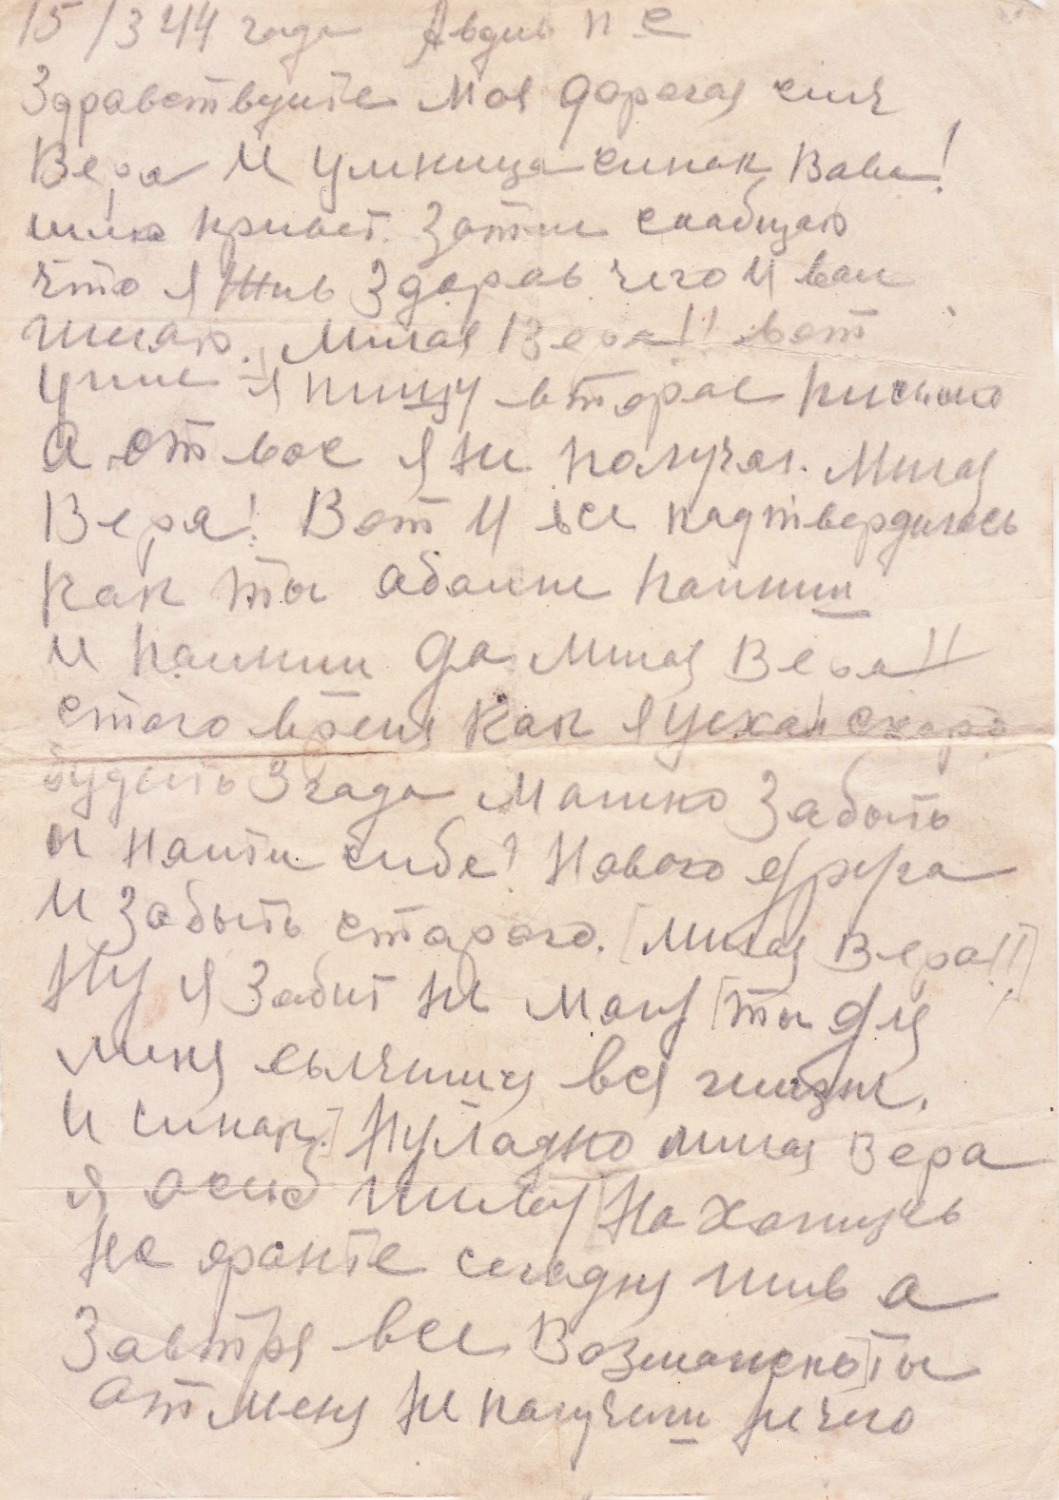 15/3 44 года Авдив П Е
Здравствуйте Моя дорогая
Вера И умница синок Вова!
шлю привет. Затем саабщаю
что я Жив Здаров чего И вам
жилаю. Милая Вера!! вот
уже я пишу второе письмо
а от вас я ни палучал. Милая
Вера! Вот И все падтвердилось
как ты
И да Милая Вера!!
стого время как я уехал скоро
будить 3 года Можно Забыть
и найти сибе? Нового друга
И Забыть старого. [Милая Вера!!]
Ну я Забит ни магу [ты для
миня вся жизнь.
И синок.] Ну Ладно милая Вера
я [На хажусь
На фронте сегодня жив а
Завтря все Возможно] ты
от меня ни палучиш ничего